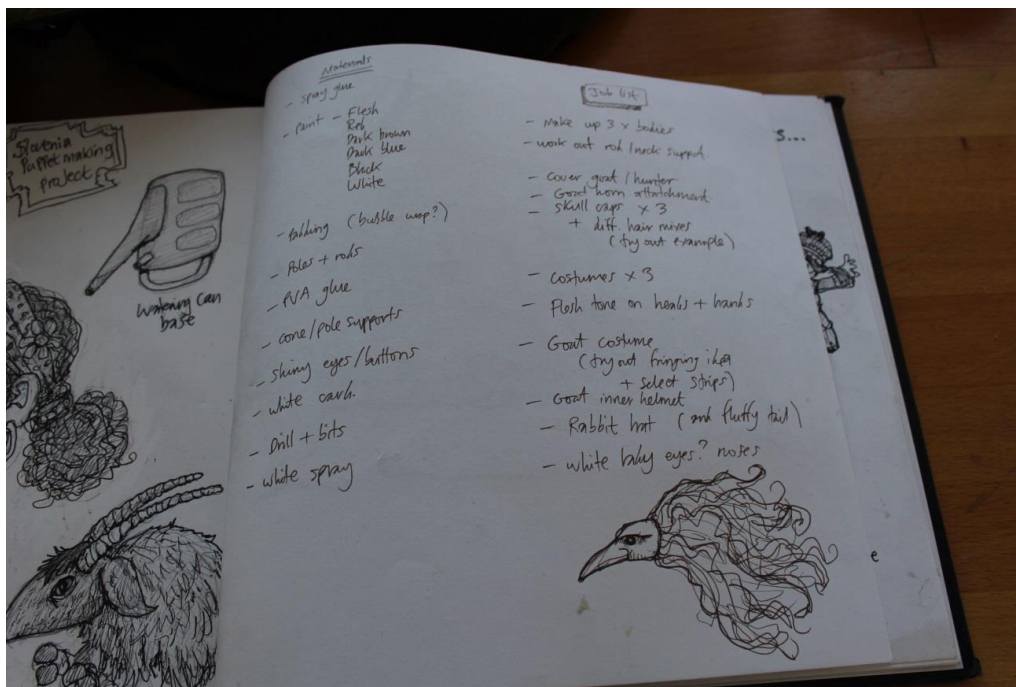 Slovenia
Puppet making
project
Watering can
base
Materials
- spray glue
- Paint - Flesh
Red
Dark brown
Dark blue
Black
White
- Padding (bubble wrap?)
- Poles + rods
- PVA glue
- cone/pole supports
- shiny eyes/buttons
- white card.
- Drill + bits
- white spray
Job list
- Make up 3 x bodies
- work out rod/neck support
- Cover goat/hunter
- Goat horn attatchment
- skull caps x 3
+ diff. hair mixes
(try out example)
- costumes x 3
- Flesh tone on heads + hands
- Goat costume
(try out fringing ikea
+ select strips)
- Goat inner helmet
- Rabbit hat (and fluffy tail)
- white baby eyes? noses
s...
e